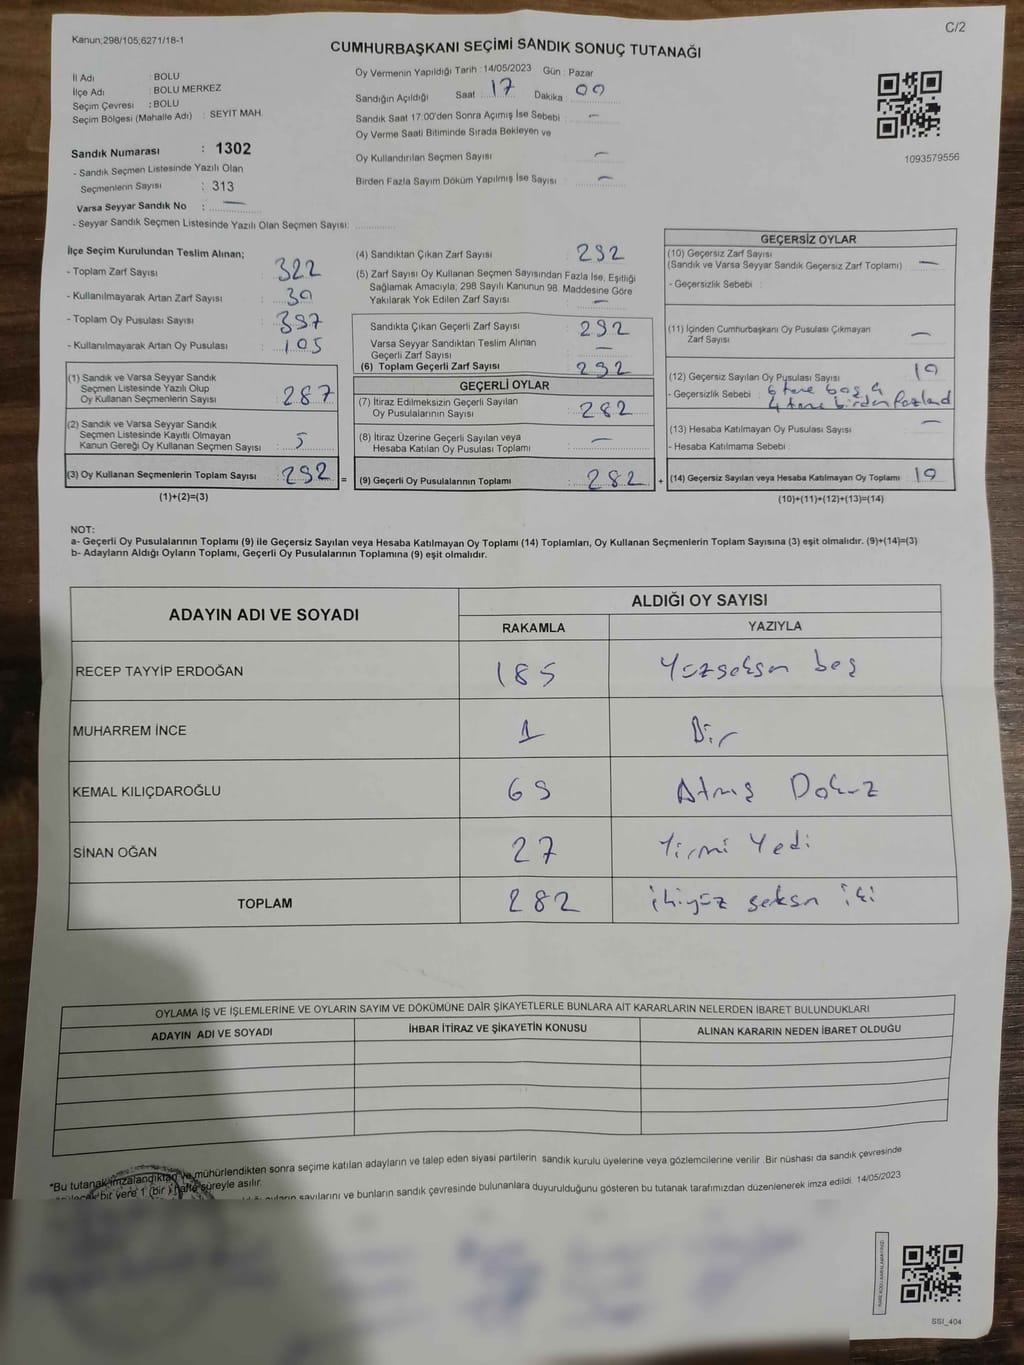 Kanun;298/105;6271/18-1
C/2
CUMHURBAŞKANI SEÇİMİ SANDIK SONUÇ TUTANAĞI
İl Adı : BOLU
İlçe Adı : BOLU MERKEZ
Seçim Çevresi : BOLU
Seçim Bölgesi (Mahalle Adı) : SEYİT MAH.
Sandık Numarası : 1302
- Sandık Seçmen Listesinde Yazılı Olan
Seçmenlerin Sayısı : 313
Varsa Seyyar Sandık No : —
- Seyyar Sandık Seçmen Listesinde Yazılı Olan Seçmen Sayısı:
Oy Vermenin Yapıldığı Tarih : 14/05/2023 Gün : Pazar
Sandığın Açıldığı Saat : 17 Dakika : 00
Sandık Saat 17:00'den Sonra Açımış İse Sebebi : —
Oy Verme Saati Bitiminde Sırada Bekleyen ve
Oy Kullandırılan Seçmen Sayısı : —
Birden Fazla Sayım Döküm Yapılmış İse Sayısı : —
1093579556
İlçe Seçim Kurulundan Teslim Alınan;
- Toplam Zarf Sayısı : 322
- Kullanılmayarak Artan Zarf Sayısı : 30
- Toplam Oy Pusulası Sayısı : 397
- Kullanılmayarak Artan Oy Pusulası : 105
(1) Sandık ve Varsa Seyyar Sandık
Seçmen Listesinde Yazılı Olup
Oy Kullanan Seçmenlerin Sayısı : 287
(2) Sandık ve Varsa Seyyar Sandık
Seçmen Listesinde Kayıtlı Olmayan
Kanun Gereği Oy Kullanan Seçmen Sayısı : 5
(3) Oy Kullanan Seçmenlerin Toplam Sayısı : 292 =
(1)+(2)=(3)
(4) Sandıktan Çıkan Zarf Sayısı : 292
(5) Zarf Sayısı Oy Kullanan Seçmen Sayısından Fazla İse, Eşitliği
Sağlamak Amacıyla; 298 Sayılı Kanunun 98. Maddesine Göre
Yakılarak Yok Edilen Zarf Sayısı : —
Sandıkta Çıkan Geçerli Zarf Sayısı : 292
Varsa Seyyar Sandıktan Teslim Alınan
Geçerli Zarf Sayısı : —
(6) Toplam Geçerli Zarf Sayısı : 292
GEÇERLİ OYLAR
(7) İtiraz Edilmeksizin Geçerli Sayılan
Oy Pusulalarının Sayısı : 282
(8) İtiraz Üzerine Geçerli Sayılan veya
Hesaba Katılan Oy Pusulası Toplamı : —
(9) Geçerli Oy Pusulalarının Toplamı : 282 +
GEÇERSİZ OYLAR
(10) Geçersiz Zarf Sayısı
(Sandık ve Varsa Seyyar Sandık Geçersiz Zarf Toplamı) : —
- Geçersizlik Sebebi :
(11) İçinden Cumhurbaşkanı Oy Pusulası Çıkmayan
Zarf Sayısı : —
(12) Geçersiz Sayılan Oy Pusulası Sayısı : 10
- Geçersizlik Sebebi : 6 tane boş
4 tane birden fazla
(13) Hesaba Katılmayan Oy Pusulası Sayısı : —
- Hesaba Katılmama Sebebi :
(14) Geçersiz Sayılan veya Hesaba Katılmayan Oy Toplamı : 10
(10)+(11)+(12)+(13)=(14)
NOT:
a- Geçerli Oy Pusulalarının Toplamı (9) ile Geçersiz Sayılan veya Hesaba Katılmayan Oy Toplamı (14) Toplamları, Oy Kullanan Seçmenlerin Toplam Sayısına (3) eşit olmalıdır. (9)+(14)=(3)
b- Adayların Aldığı Oyların Toplamı, Geçerli Oy Pusulalarının Toplamına (9) eşit olmalıdır.
ADAYIN ADI VE SOYADI
ALDIĞI OY SAYISI
RAKAMLA YAZIYLA
RECEP TAYYİP ERDOĞAN 185 Yüzseksen beş
MUHARREM İNCE 1 Bir
KEMAL KILIÇDAROĞLU 69 Atmış Dokuz
SİNAN OĞAN 27 Yirmi Yedi
TOPLAM 282 ikiyüz seksen iki
OYLAMA İŞ VE İŞLEMLERİNE VE OYLARIN SAYIM VE DÖKÜMÜNE DAİR ŞİKAYETLERLE BUNLARA AİT KARARLARIN NELERDEN İBARET BULUNDUKLARI
ADAYIN ADI VE SOYADI İHBAR İTİRAZ VE ŞİKAYETİN KONUSU ALINAN KARARIN NEDEN İBARET OLDUĞU
*Bu tutanak imzalandıktan ve mühürlendikten sonra seçime katılan adayların ve talep eden siyasi partilerin sandık kurulu üyelerine veya gözlemcilerine verilir. Bir nüshası da sandık çevresinde
bir yere 1 (bir) hafta süreyle asılır.
sayılarını ve bunların sandık çevresinde bulunanlara duyurulduğunu gösteren bu tutanak tarafımızdan düzenlenerek imza edildi. 14/05/2023
SSI_404